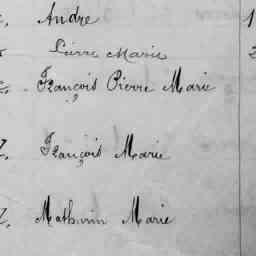 Andre
Pierre Marie
François Pierre Marie
François Marie
Mathurin Marie